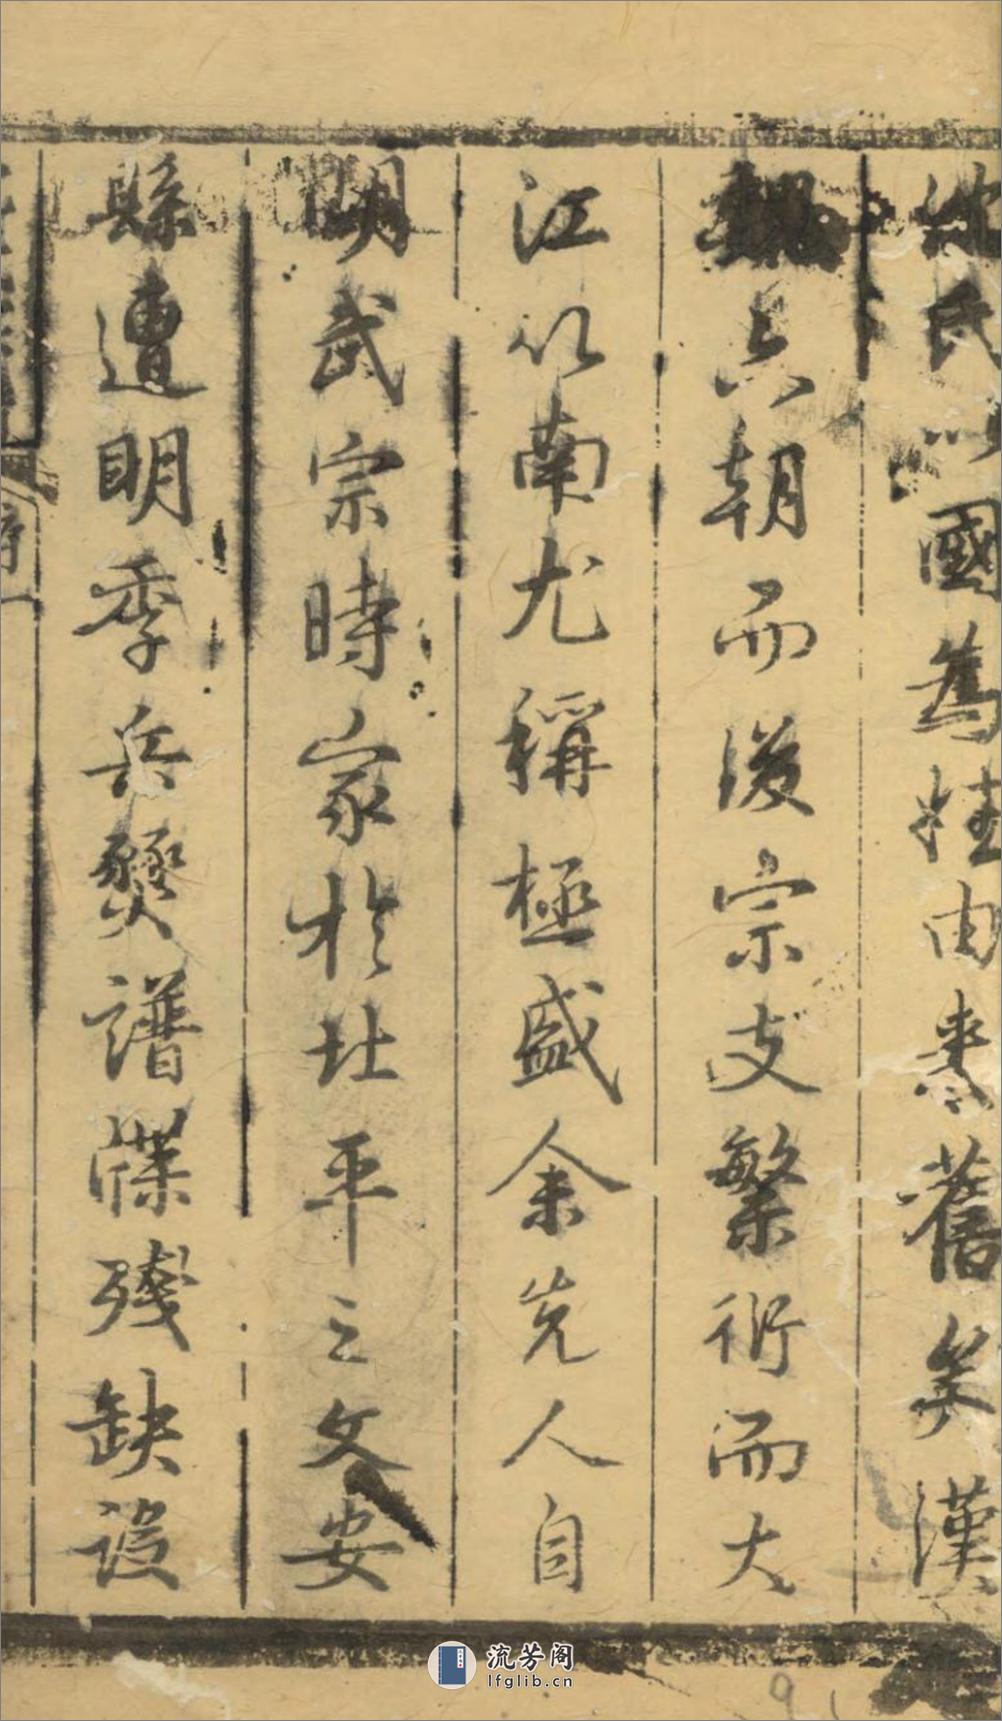 沈氏以國為姓由來舊矣漢
魏六朝而後宗支繁衍而大
江以南尤稱極盛余先人自
明武宗時家於北平之文安
縣遭明季兵燹譜牒殘缺設
序一
流芳阁
lfglib.cn